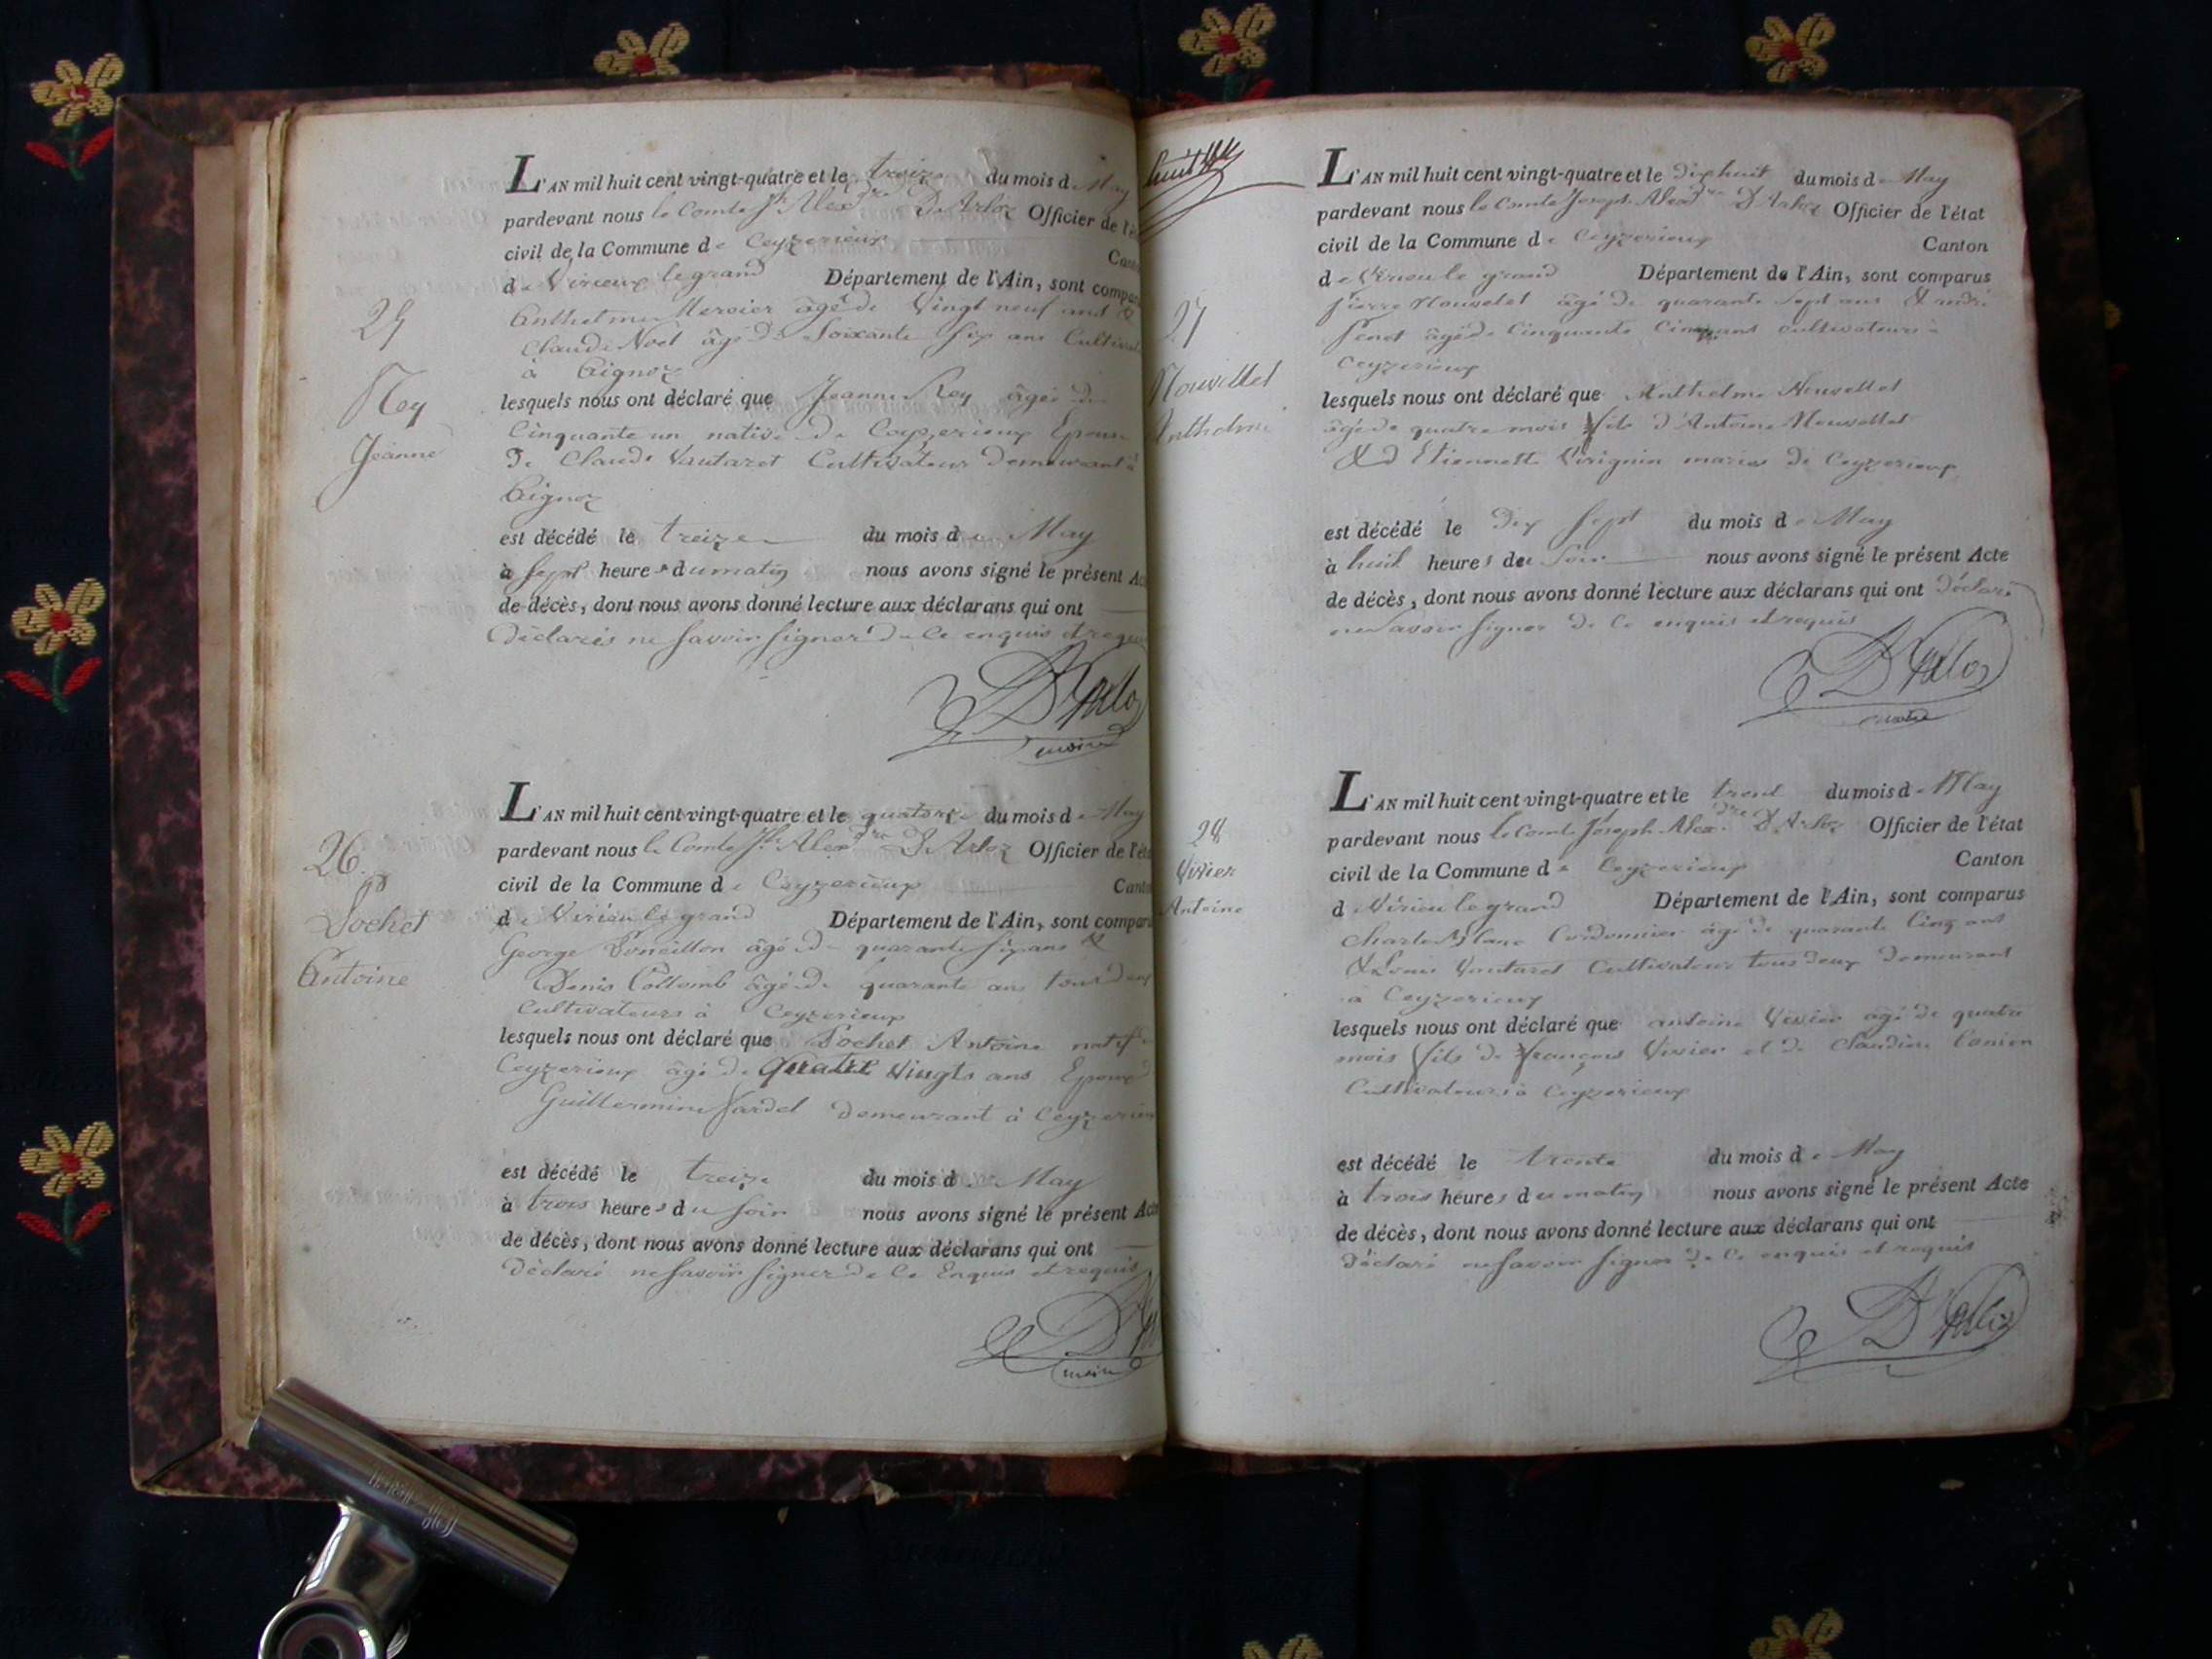 25
Rey
Jeanne
L'AN mil huit cent vingt-quatre et le treize du mois de May
pardevant nous le Comte Jh Alexdre D'Arloz Officier de l'é
civil de la Commune de Ceyzerieux Cant
de Virieux le grand Département de l'Ain, sont compa
Anthelme Mercier âgé de Vingt neuf ans &
Claude Noël âgé de Soixante six ans Cultivat
à Aignoz
lesquels nous ont déclaré que Jeanne Rey âgée de
Cinquante un native de Ceyzerieux Epouse
de Claude Vautaret Cultivateur demeurant à
Aignoz
est décédé le treize du mois de May
à sept heures du matin nous avons signé le présent Ac
de décès, dont nous avons donné lecture aux déclarans qui ont
Déclarés ne savoir signer de ce enquis et requis
D'Arloz
maire
26.
Pochet
Antoine
L'AN mil huit cent vingt-quatre et le quatorze du mois de May
pardevant nous le Comte Jh Alexdre D'Arloz Officier de l'éta
civil de la Commune de Ceyzerieux Canto
de Virieu le grand Département de l'Ain, sont comparu
George âgé de quarante six ans &
Denis Collomb âgé de quarante ans tous deux
Cultivateurs à Ceyzerieux
lesquels nous ont déclaré que Pochet Antoine natif
Ceyzerieux âgé de quatre Vingts ans Epoux d
Guillermine Jardel demeurant à Ceyzerieux
est décédé le treize du mois de May
à trois heures du soir nous avons signé le présent Acte
de décès, dont nous avons donné lecture aux déclarans qui ont
Déclaré ne savoir signer de ce Enquis et requis
maire
huit
27
Nouvellet
Anthelme
L'AN mil huit cent vingt-quatre et le dix huit du mois de May
pardevant nous le Comte Joseph Alexdre D'Arloz Officier de l'état
civil de la Commune de Ceyzerieux Canton
de Virieu le grand Département de l'Ain, sont comparus
Pierre Nouvelet âgé de quarante sept ans & André
âgé de Cinquante Cinq ans cultivateurs à
Ceyzerieux
lesquels nous ont déclaré que Anthelme Nouvellet
âgé de quatre mois fils d'Antoine Nouvellet
& d'Etiennette Virignin mariés de Ceyzerieux
est décédé le dix sept du mois de May
à huit heures du soir nous avons signé le présent Acte
de décès, dont nous avons donné lecture aux déclarans qui ont Déclaré
ne savoir signer de ce enquis et requis
D'Arloz
maire
28
Vivier
Antoine
L'AN mil huit cent vingt-quatre et le trent du mois de May
pardevant nous le Comte Joseph Alex.dre D'Arloz Officier de l'état
civil de la Commune de Ceyzerieux Canton
d Virieu le grand Département de l'Ain, sont comparus
Charle Blanc Cordonnier âgé de quarante cinq ans
& Louis Vautaret Cultivateur tous deux demeurant
à Ceyzerieux
lesquels nous ont déclaré que antoine Vivier âgé de quatre
mois fils de françois Vivier et de Claudine
Cultivateurs à Ceyzerieux
est décédé le trente du mois de May
à trois heures du matin nous avons signé le présent Acte
de décès, dont nous avons donné lecture aux déclarans qui ont
Déclaré ne savoir signer de ce enquis et requis
D'Arloz